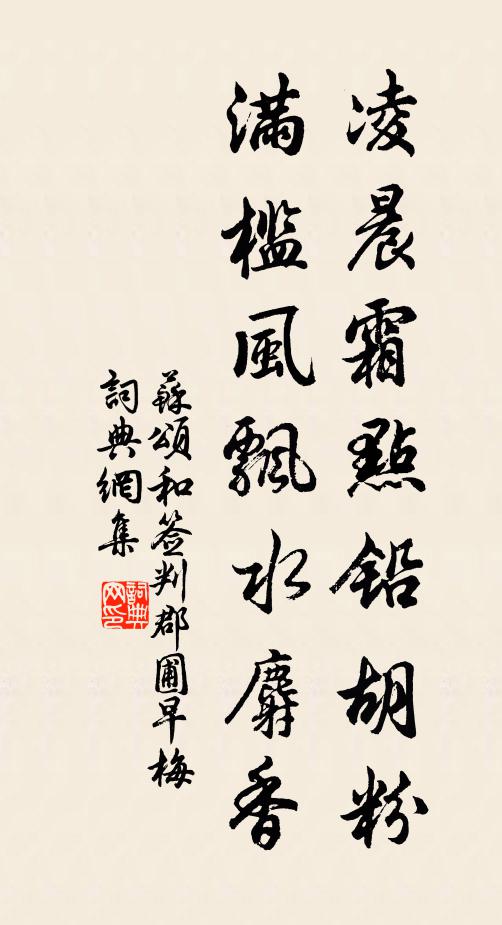 凌晨霜點鉛胡粉
滿檻風飄水麝香
蘇頌和簽判郡圃早梅
詞典網集
詞典网印